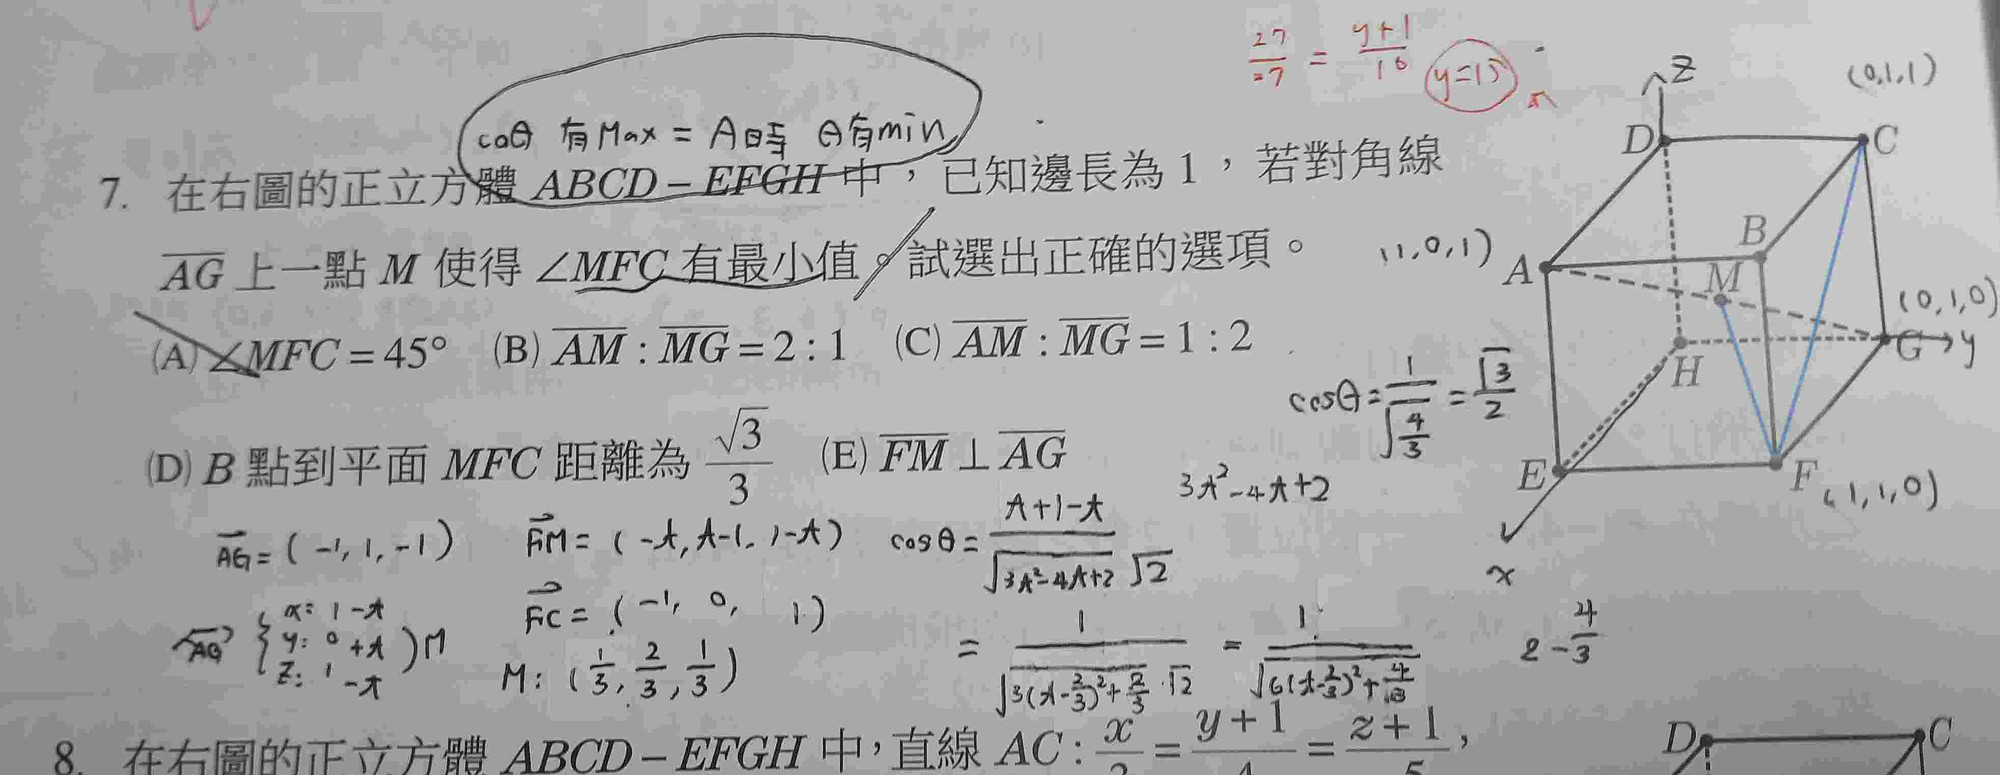 27/27 = y+1/16 y=15
cosθ 有Max = A時 θ有min
7. 在右圖的正立方體 ABCD－EFGH 中，已知邊長為 1，若對角線
AG 上一點 M 使得 ∠MFC 有最小值。試選出正確的選項。
(A) ∠MFC = 45° (B) AM : MG = 2 : 1 (C) AM : MG = 1 : 2
(D) B 點到平面 MFC 距離為 √3/3 (E) FM ⊥ AG
cosθ = 1/√(4/3) = √3/2
3t²-4t+2
AG = (-1, 1, -1) FM = (-t, t-1, 1-t) cosθ = t+1-t / √(3t²-4t+2) √2
AG { x: 1-t
y: 0+t ) M
z: 1-t
FC = (-1, 0, 1)
M: (1/3, 2/3, 1/3)
= 1/√(3(t-2/3)²+2/3)·√2 = 1/√(6(t-2/3)²+4/3)
2-4/3
z
(0,1,1)
D C
B
(1,0,1) A M
(0,1,0)
H G y
E F (1,1,0)
x
8. 在右圖的正立方體 ABCD－EFGH 中，直線 AC : x/2 = y+1/4 = z+1/5 ,
D C